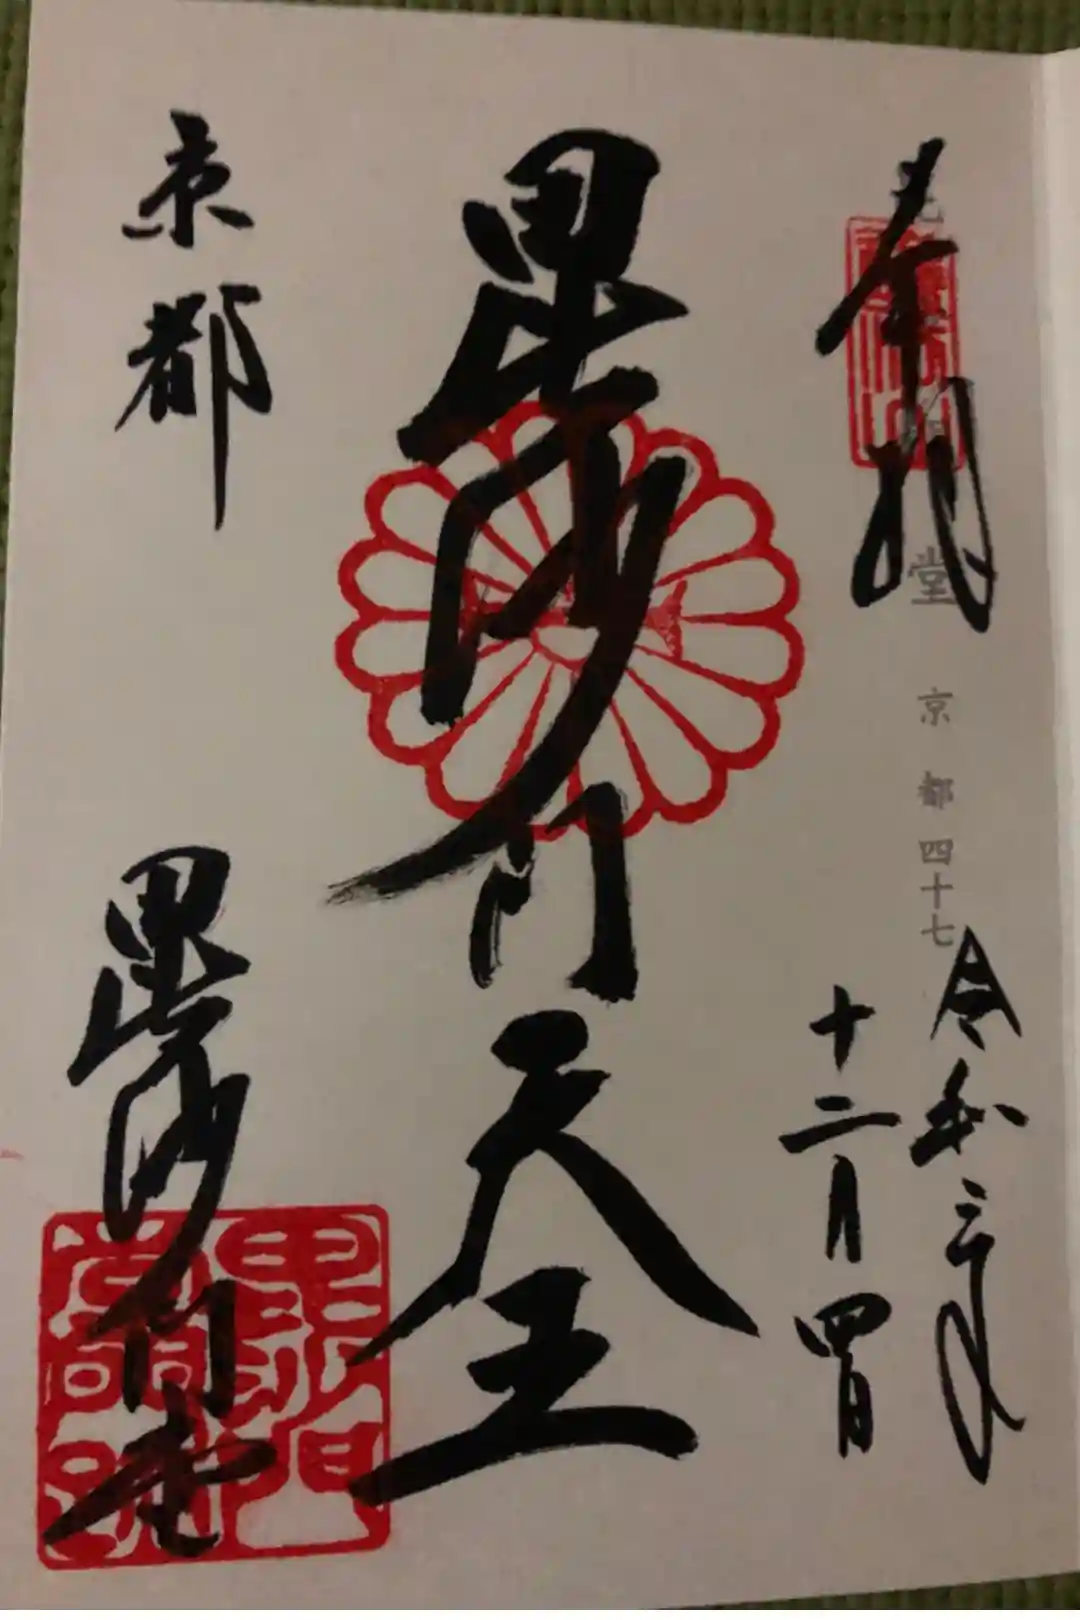 奉拝
堂 京都四十七
令和三年
十二月四日
毘沙門天王
京都
毘沙門堂